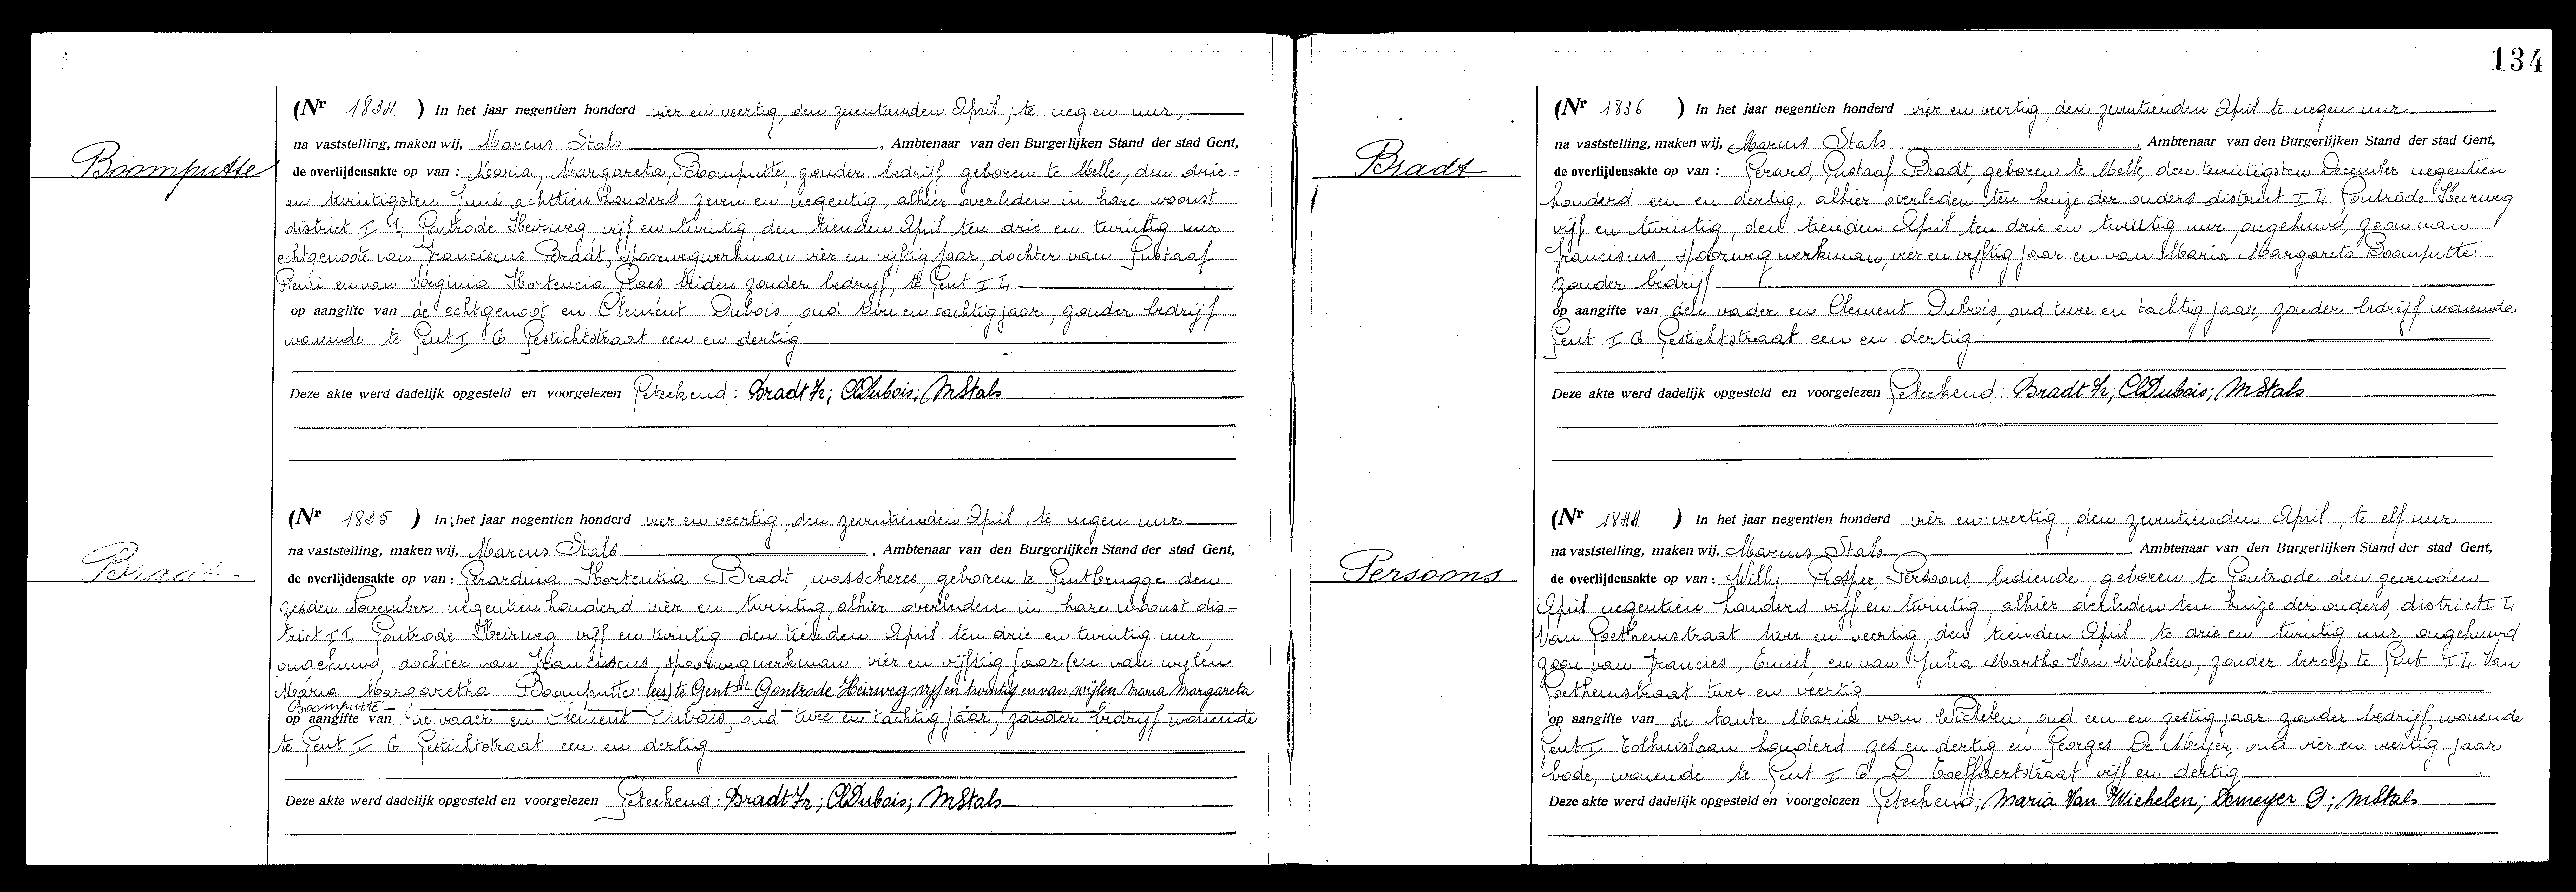 134
Boomputte
(Nr 1834.) In het jaar negentien honderd vier en veertig, den zeventienden April, te negen uur,
na vaststelling, maken wij, Marcus Stals, Ambtenaar van den Burgerlijken Stand der stad Gent,
de overlijdensakte op van : Maria, Margareta, Boomputte, zonder bedrijf, geboren te Melle, den drie-
en twintigsten Juni achttien honderd zeven en negentig, alhier overleden in hare woonst
district I L Gontrode Heirweg, vijf en twintig, den tienden April ten drie en twintig uur
echtgenoote van Franciscus Bradt, spoorwegwerkman vier en vijftig jaar, dochter van Gustaaf
Remi en van Virginia Hortencia Claes beiden zonder bedrijf, te Gent I L
op aangifte van de echtgenoot en Clement Dubois, oud twee en tachtig jaar, zonder bedrijf
wonende te Gent I G Gestichtstraat een en dertig
Deze akte werd dadelijk opgesteld en voorgelezen Geteekend: Bradt Fr; ClDubois; MStals
Bradt
(Nr 1835) In het jaar negentien honderd vier en veertig, den zeventienden April, te negen uur
na vaststelling, maken wij, Marcus Stals, Ambtenaar van den Burgerlijken Stand der stad Gent,
de overlijdensakte op van : Gerardina Hortentia Bradt, wasscheres, geboren te Gentbrugge den
zesden November negentien honderd vier en twintig, alhier overleden in hare woonst dis-
trict I L Gontrode Heirweg vijf en twintig den tienden April ten drie en twintig uur,
ongehuwd, dochter van Franciscus, spoorwegwerkman vier en vijftig jaar (en van wijlen
Maria Margaretha Boomputte: lees) te Gent I L Gontrode Heirweg, vijf en twintig en van wijlen Maria Margareta
Boomputte
op aangifte van de vader en Clement Dubois, oud twee en tachtig jaar, zonder bedrijf wonende
te Gent I G Gestichtstraat een en dertig
Deze akte werd dadelijk opgesteld en voorgelezen Geteekend: Bradt Fr; ClDubois; MStals
Bradt
(Nr 1836) In het jaar negentien honderd vier en veertig, den zeventienden April te negen uur
na vaststelling, maken wij, Marcus Stals, Ambtenaar van den Burgerlijken Stand der stad Gent,
de overlijdensakte op van : Gerard, Gustaaf Bradt, geboren te Melle, den twintigsten December negentien
honderd een en dertig, alhier overleden ten huize der ouders district I L Gontrode Heirweg
vijf en twintig, den tienden April ten drie en twintig uur, ongehuwd, zoon van
Franciscus, spoorwegwerkman, vier en vijftig jaar en van Maria Margareta Boomputte
zonder bedrijf
op aangifte van den vader en Clement Dubois, oud twee en tachtig jaar, zonder bedrijf wonende
Gent I G Gestichtstraat een en dertig
Deze akte werd dadelijk opgesteld en voorgelezen Geteekend: Bradt Fr; ClDubois; MStals
Persoons
(Nr 1844.) In het jaar negentien honderd vier en veertig, den zeventienden April, te elf uur
na vaststelling, maken wij, Marcus Stals, Ambtenaar van den Burgerlijken Stand der stad Gent,
de overlijdensakte op van : Willy Prosper Persoons, bediende, geboren te Gontrode den zevenden
April negentien honderd vijf en twintig, alhier overleden ten huize der ouders, district I L
Van Goethemstraat twee en veertig, den tienden April te drie en twintig uur, ongehuwd
zoon van Francies, Emiel, en van Julia Martha Van Wichelen, zonder beroep te Gent I L Van
Goethemstraat twee en veertig
op aangifte van de tante Maria van Wichelen, oud een en zestig jaar zonder bedrijf, wonende
Gent I Tolhuislaan honderd zes en dertig en Georges De Meyer, oud vier en veertig jaar
bode, wonende te Gent I G D. Toeffaertstraat vijf en dertig
Deze akte werd dadelijk opgesteld en voorgelezen Geteekend; Maria Van Wichelen; Demeyer G; MStals